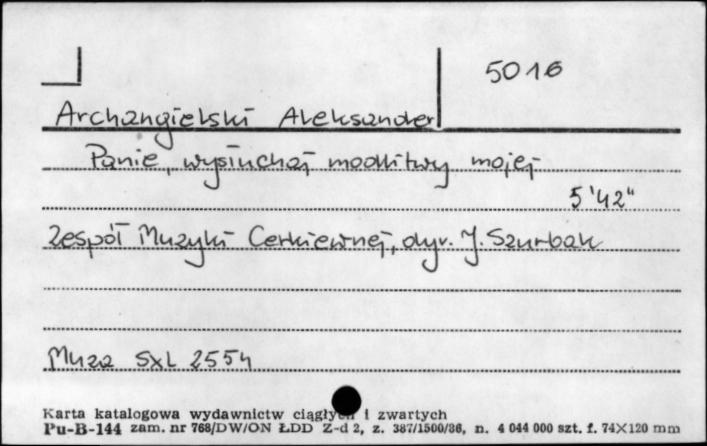 5016
Archangielski Aleksander
Panie, wysłuchaj modlitwy mojej
5'42"
Zespół Muzyki Cerkiewnej, dyr. J. Szurbak
Muza SXL 2554
Karta katalogowa wydawnictw ciągłych i zwartych
Pu-B-144 zam. nr 768/DW/ON ŁDD Z-d 2, z. 387/1500/86, n. 4 044 000 szt. f. 74×120 mm